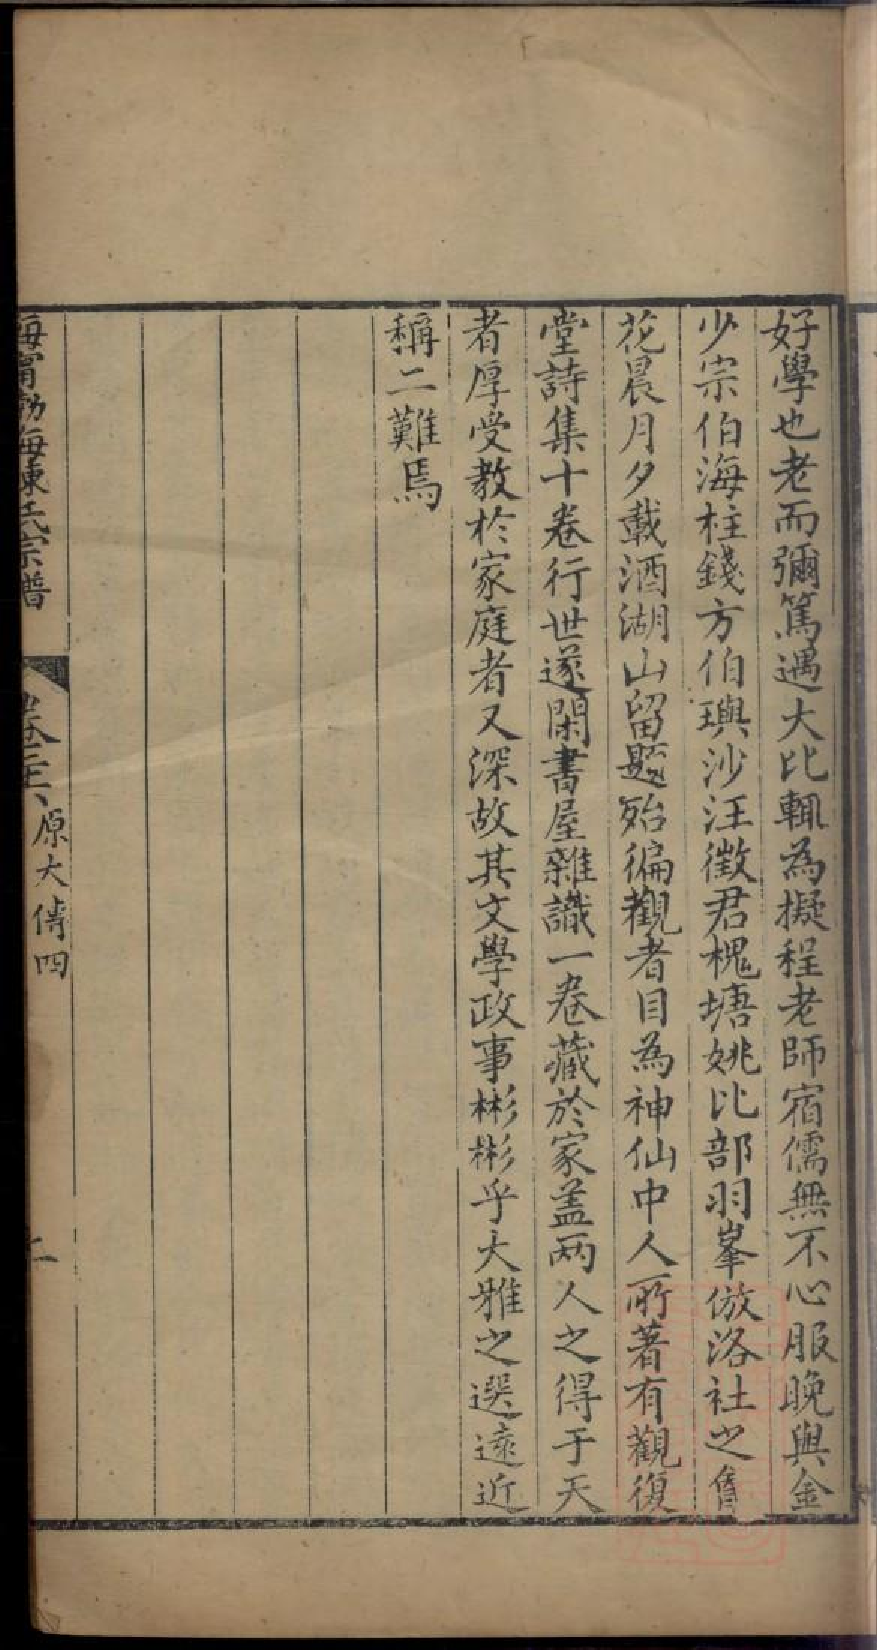 好學也老而彌篤遇大比輙為擬程老師宿儒無不心服晚與金
少宗伯海柱錢方伯璵沙汪徵君槐塘姚比部羽峯倣洛社之
花晨月夕載酒湖山留題殆徧觀者目為神仙中人所著有觀復
堂詩集十卷行世遂閑書屋雜識一卷藏於家盖兩人之得于天
者厚受教於家庭者又深故其文學政事彬彬乎大雅之選遠近
稱二難焉
海甯渤海陳氏宗譜
原大傳四